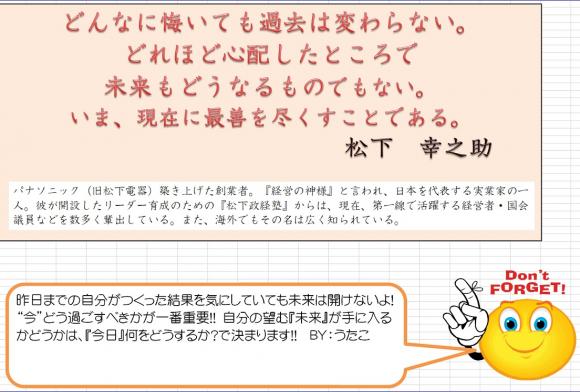 どんなに悔いても過去は変わらない。
どれほど心配したところで
未来もどうなるものでもない。
いま、現在に最善を尽くすことである。
松下　幸之助
パナソニック（旧松下電器）築き上げた創業者。『経営の神様』と言われ、日本を代表する実業家の一
人。彼が開設したリーダー育成のための『松下政経塾』からは、現在、第一線で活躍する経営者・国会
議員などを数多く輩出している。また、海外でもその名は広く知られている。
Don't
FORGET!
昨日までの自分がつくった結果を気にしていても未来は開けないよ!
“今”どう過ごすべきかが一番重要!! 自分の望む『未来』が手に入る
かどうかは、『今日』何をどうするか?で決まります!!　BY：うたこ